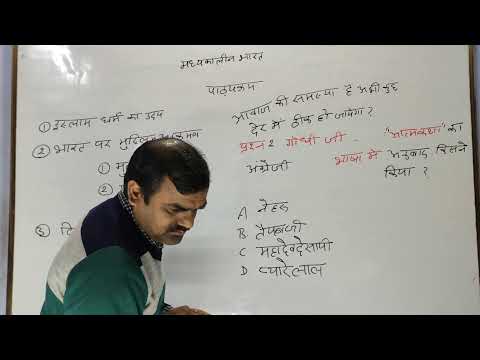 मध्यकालीन भारत
पाठ्यक्रम
① इस्लाम धर्म का उदय
② भारत पर मुस्लिम
① मु
②
③ ति
आवाज की समस्या है अभी कुछ
देर में ठीक हो जायेगा ?
प्रश्न 2 गाँधी जी - "आत्मकथा" का
अंग्रेजी भाषा में अनुवाद किसने
किया ?
A नेहरू
B तैयबजी
C महादेव देसाई
D प्यारेलाल